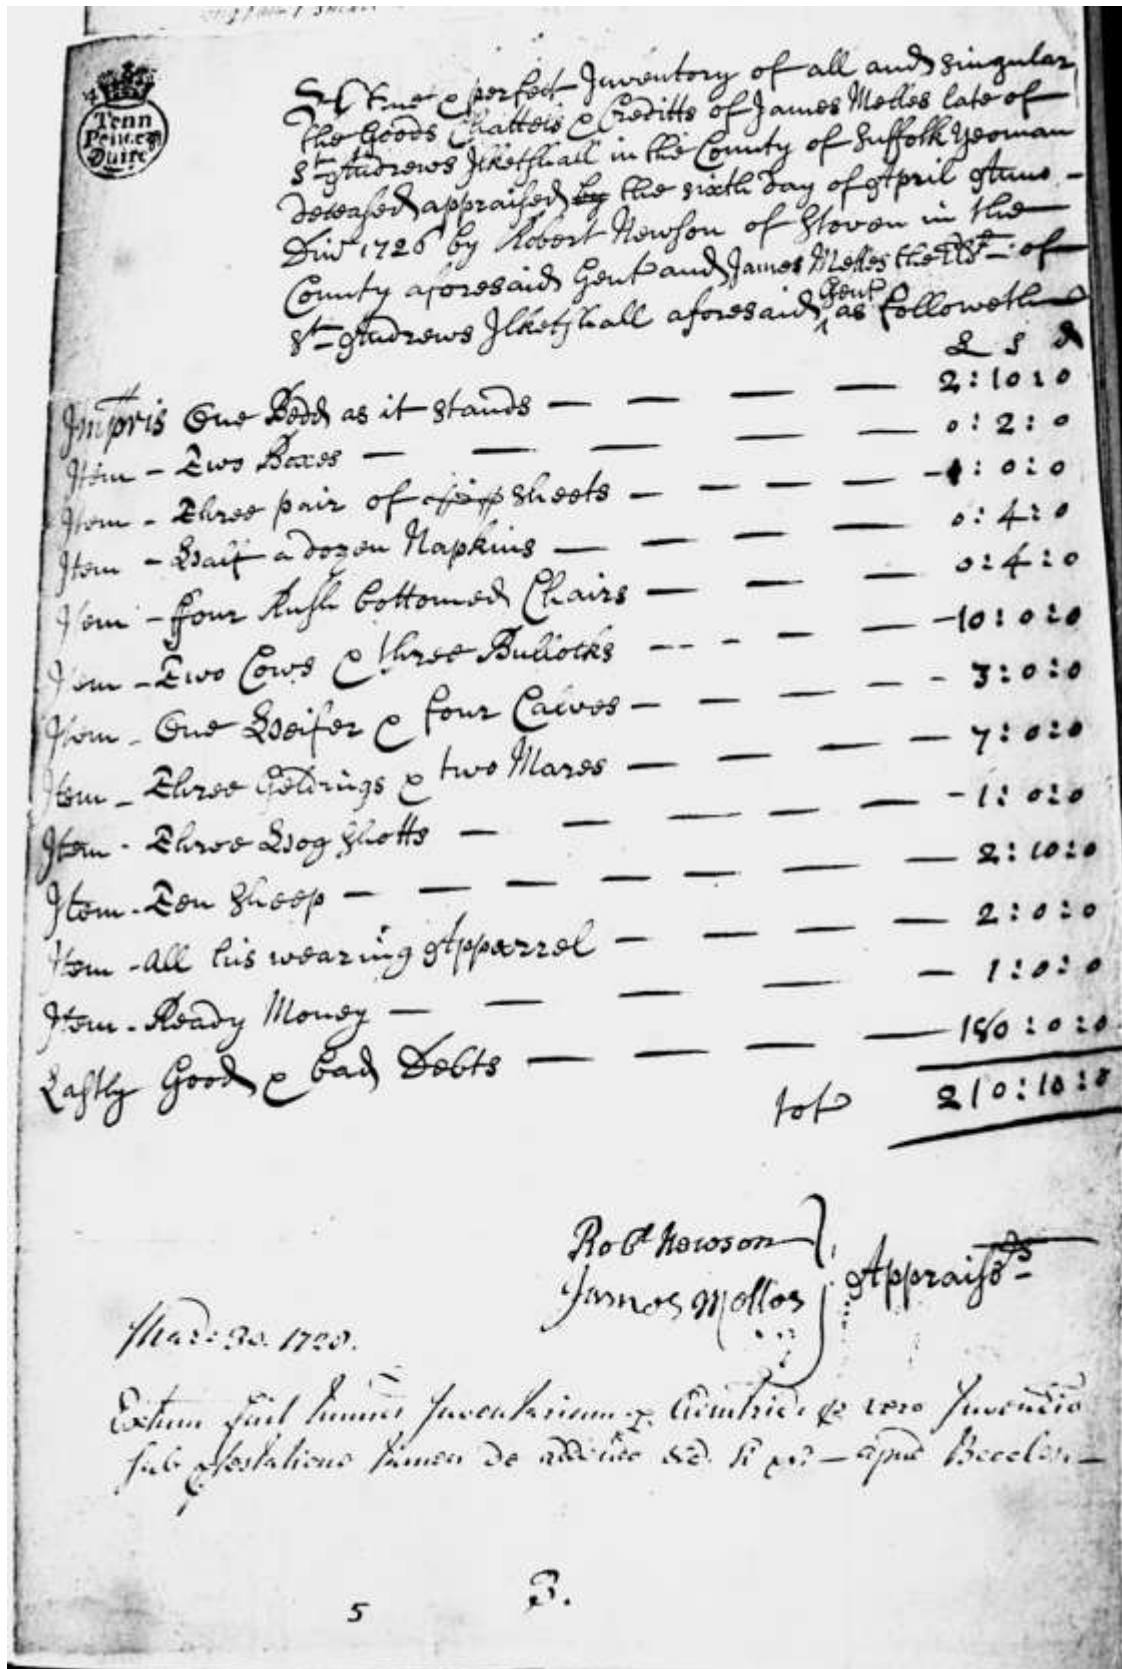 Tenn
Pence p
Quire
A true & perfect Inventory of all and singular
the Goods Chattels & Creditts of James Melles late of
St Andrews Ilketshall in the County of Suffolk Yeoman
deceased appraised by the sixth day of April Anno
Dni 1726 by Robert Newson of Stoven in the
County aforesaid Gent and James Melles the of
St Andrews Ilketshall aforesaid Gent as followeth
£ s d
Impris One Bedd as it stands — — — — 2:10:0
Item - Two Boxes — — — — — 0:2:0
Item - Three pair of sheets — — — — 1:0:0
Item - Half a dozen Napkins — — — — 0:4:0
Item - Four Rush bottomed Chairs — — — 0:4:0
Item - Two Cows & three Bullocks -- - — — 10:0:0
Item - One Heifer & four Calves — — — - - 3:0:0
Item - Three Geldings & two Mares — — — — 7:0:0
Item - Three Hog Shotts — — — — — 1:0:0
Item - Ten Sheep — — — — — — — 2:10:0
Item - All his wearing Apparrel — — — — 2:0:0
Item - Ready Money — — — — — 1:0:0
Lastly Good & bad Debts — — — — 180:0:0
tot 210:10:0
Robt Newson
James Melles
Appraisrs
30. 1728.
Extum fuit Inventarium vero Inventio
sub protestatione tamen de addendo &c. si apud Beccles
5 3.